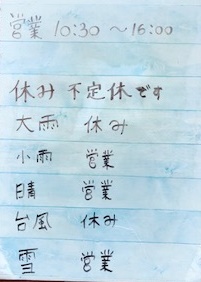 営業 10:30 〜16:00
休み 不定休です
大雨 休み
小雨 営業
晴 営業
台風 休み
雪 営業